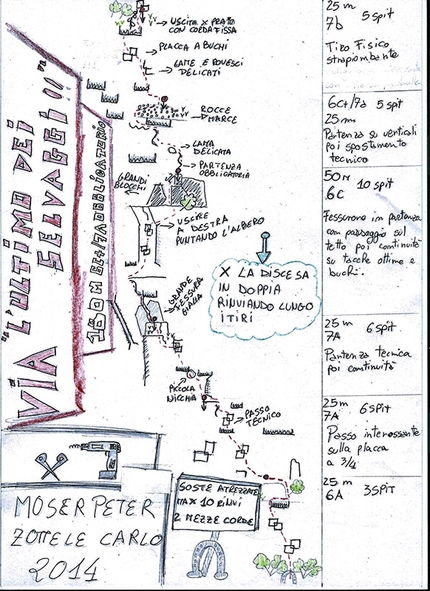 VIA "L'ULTIMO DEI
SELVAGGI"
150 M 6c+/7A OBBLIGATORIO
USCITA X PRATO
CON CORDA FISSA
PLACCA A BUCHI
LAME E ROVESCI
DELICATI
ROCCE
MARCE
LAMA
DELICATA
PARTENZA
OBBLIGATORIA
GRANDI
BLOCCHI
USCIRE
A DESTRA
PUNTANDO L'ALBERO
GRANDE
FESSURA
GIALLA
X LA DISCESA
IN DOPPIA
RINVIANDO LUNGO
I TIRI
PICCOLA
NICCHIA
PASSO
TÉCNICO
SOSTE ATREZZATE
MAX 10 RINVI
2 MEZZE CORDE
MOSER PETER
ZOTTELE CARLO
2014
25 m
7b 5 spit
Tiro Fisico
strapiombante
6c+/7a 5 spit
25m
Partenza su verticali
poi spostamento
tecnico
50m
6c 10 spit
Fessurone in partenza
con passaggio sul
tetto poi continuità
su tacche ottime e
buchi.
25 m
7A 6 spit
Partenza tecnica
poi continuità
25m
7A 6 spit
Passo interessante
sulla placca
a 3/4
25 m
6A 3 SPIT